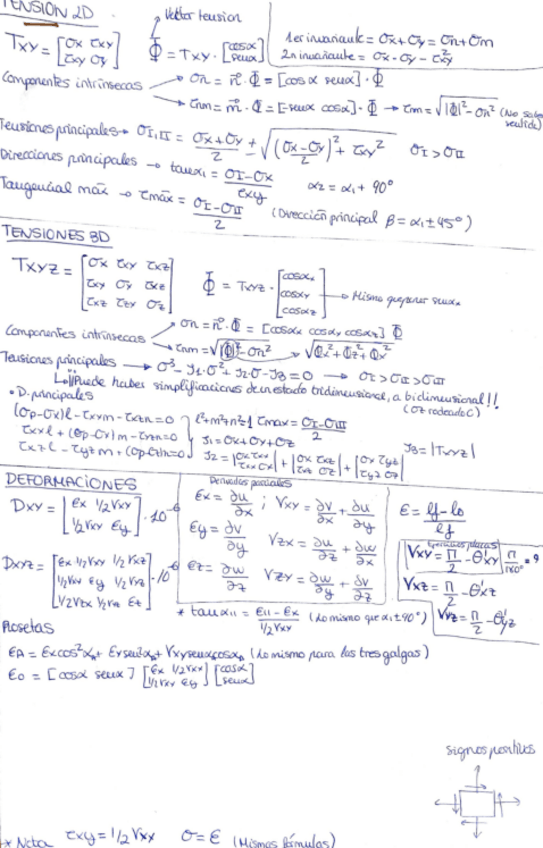 TENSION 2D
Vector tension
Txy = [σx τxy; τxy σy]
Φ = Txy · [cosα; senα]
1er invariante = σx + σy = σn + σm
2n invariante = σx · σy - τ²xy
Componentes intrínsecas
σn = n · Φ = [cosα senα] · Φ
τnm = m · Φ = [-senα cosα] · Φ → τnm = √|Φ|² - σn² (No sabe sentido)
Tensiones principales → σI,II = (σx + σy)/2 ± √((σx - σy)/2)² + τxy² σI > σII
Direcciones principales → tanα1 = (σI - σx)/τxy α2 = α1 + 90°
Tangencial máx → τmáx = (σI - σII)/2 (Dirección principal β = α1 ± 45°)
TENSIONES 3D
Txyz = [σx τxy τxz; τxy σy τxz; τxz τzy σz]
Φ = Txyz · [cosαx; cosαy; cosαz] → Mismo que poner senαx
Componentes intrínsecas
σn = n · Φ = [cosαx cosαy cosαz] Φ
τnm = √|Φ|² - σn² → √Φx² + Φz² + Φx²
Tensiones principales → σ³ - J1·σ² + J2·σ - J3 = 0 → σI > σII > σIII
¡¡Puede haber simplificaciones de un estado tridimensional, a bidimensional!!
(σz rodeado 0)
• D. principales
(σp - σx)l - τxxm - τxzn = 0
τxxl + (σp - σx)m - τxzn = 0
τxzl - τyzm + (σp - σz)n = 0
l² + m² + n² = 1 τmax = (σI - σIII)/2
J1 = σx + σy + σz
J2 = |σx τxx; τxx σx| + |σx τxz; τxz σz| + |σx τyz; τyz σz|
J3 = |Txyz|
DEFORMACIONES
Dxy = [εx 1/2γxy; 1/2γxy εy] · 10⁻⁶
Dxyz = [εx 1/2γxy 1/2γxz; 1/2γxy εy 1/2γyz; 1/2γzx 1/2γyz εz] · 10⁻⁶
Derivadas parciales
εx = ∂u/∂x ; γxy = ∂v/∂x + ∂u/∂y
εy = ∂v/∂y γzx = ∂u/∂z + ∂w/∂x
εz = ∂w/∂z γzy = ∂w/∂y + ∂v/∂z
* tanα11 = (ε11 - εx)/(1/2γxy) (Lo mismo que α1 ± 90°)
ε = (lf - lo)/lf
Ejercicios placas
γxy = π/2 - θ'xy π/180° = 9
γxz = π/2 - θ'xz
γyz = π/2 - θ'yz
Rosetas
εA = εxcos²αA + εysen²αA + γxysenαAcosαA (Lo mismo para las tres galgas)
ε0 = [cosα senα] [εx 1/2γxy; 1/2γxy εy] [cosα; senα]
signos positivos
* Nota τxy = 1/2 γxy σ = ε (Mismas fórmulas)